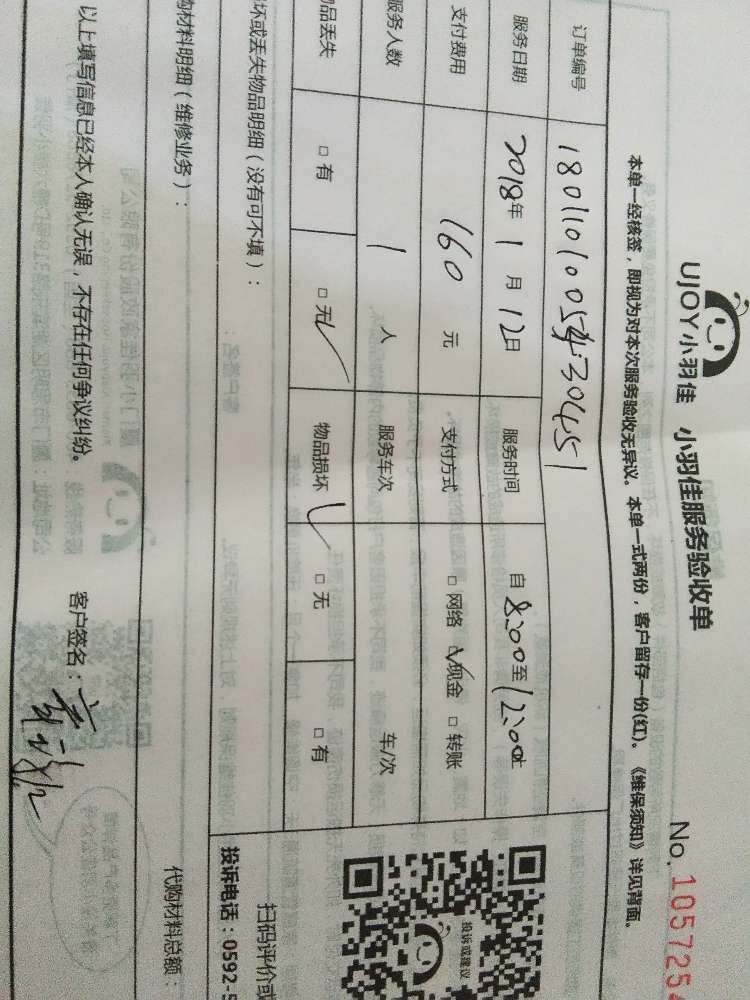 UJOY小羽佳 小羽佳服务验收单 No. 105725
本单一经核签，即视为对本次服务验收无异议。本单一式两份，客户留存一份(红)。《维保须知》详见背面。
订单编号
服务日期 2018年1月12日 服务时间 自8:00至12:00止
支付费用 160元 支付方式 □网络 ☑现金 □转账
服务人数 1人 服务车次 车/次
品丢失 □有 □无✓ 物品损坏 ✓□无 □有
坏或丢失物品明细（没有可不填）：
购材料明细（维修业务）：
代购材料总额：
以上填写信息已经本人确认无误，不存在任何争议纠纷。 客户签名：
投诉或建议
扫码评价或
投诉电话：0592-5